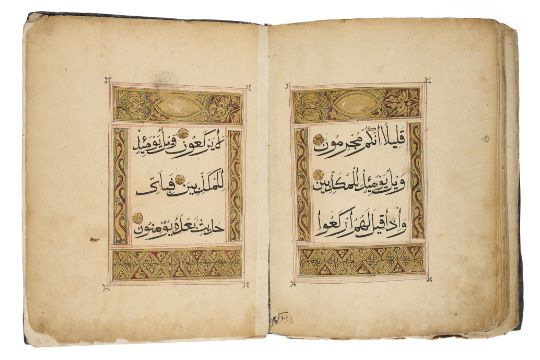 قليلا انكم مجرمون
ويل يومئذ للمكذبين
واذا قيل لهم اركعوا
لا يركعون ويل يومئذ
للمكذبين فباى
حديث بعده يؤمنون